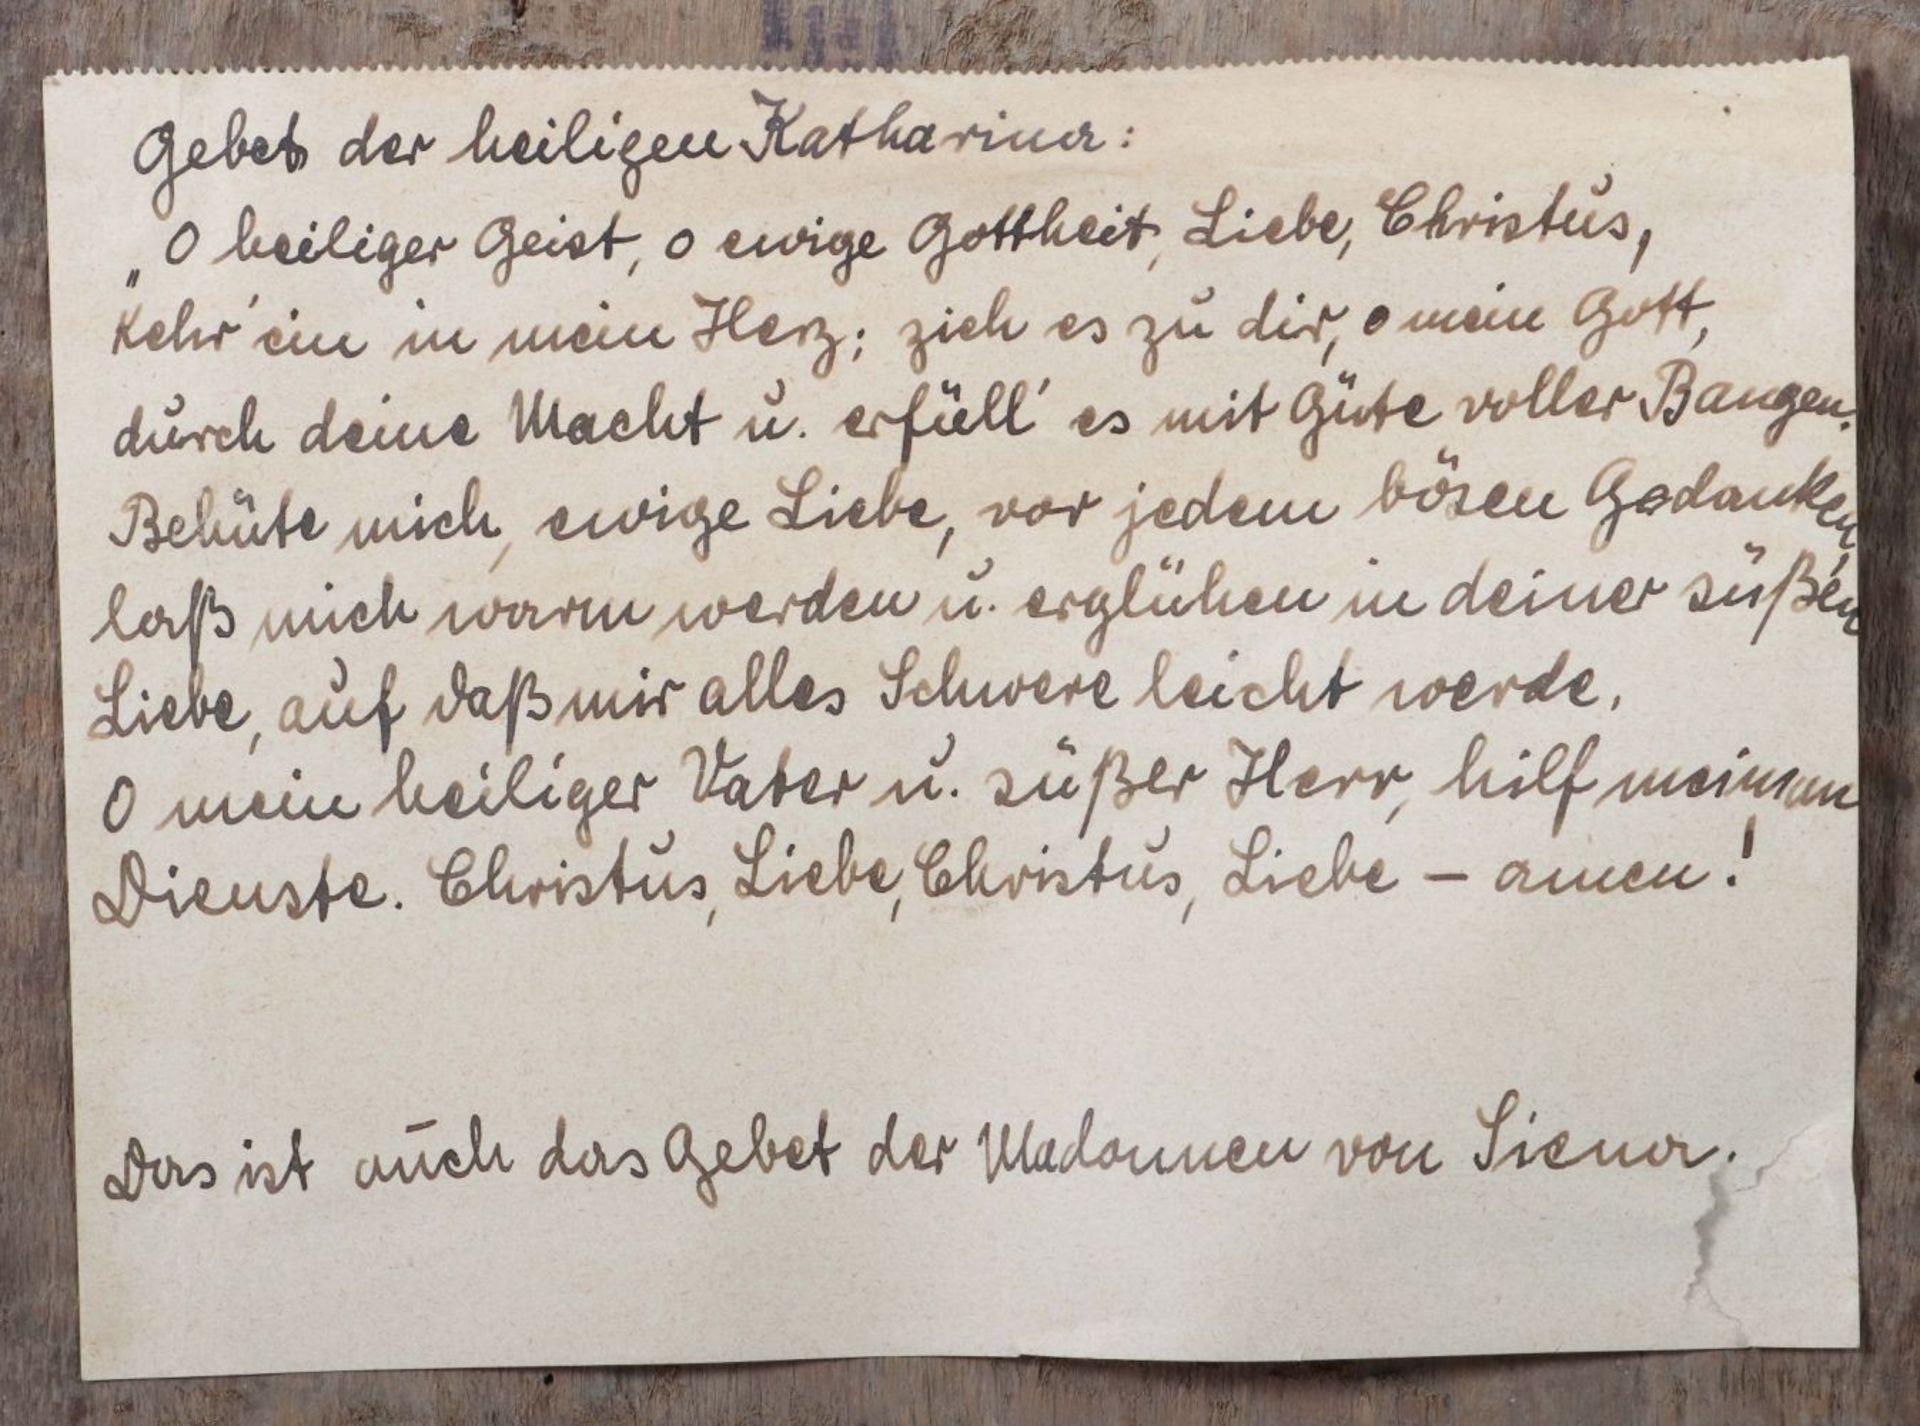 Gebet der heiligen Katharina:
„O heiliger Geist, o ewige Gottheit, Liebe, Christus,
kehr' ein in mein Herz; zieh es zu dir, o mein Gott,
durch deine Macht u. erfüll' es mit Güte voller Bangen.
Behüte mich, ewige Liebe, vor jedem bösen Gedanken,
laß mich warm werden u. erglühen in deiner süßen
Liebe, auf daß mir alles Schwere leicht werde.
O mein heiliger Vater u. süßer Herr, hilf meinem
Dienste. Christus, Liebe, Christus, Liebe – amen!
Das ist auch das Gebet der Madonnen von Siena.